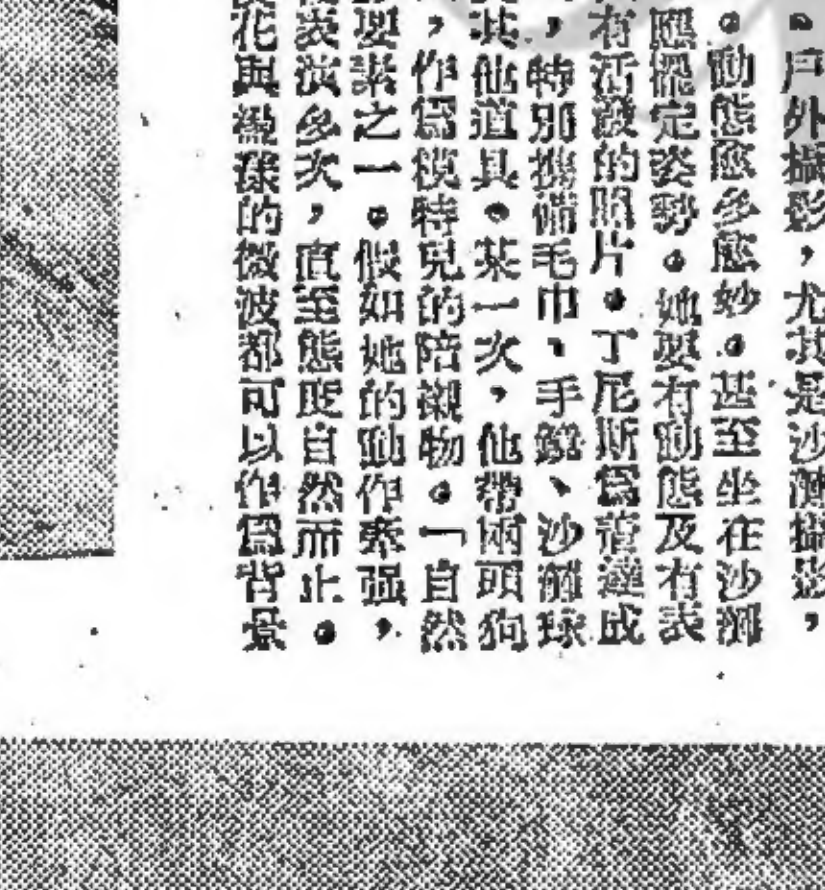 。戶外攝影,尤其是沙灘攝影,
。動態應多應妙。甚至坐在沙灘
應擺定姿勢。她要有動態及有表
有活潑的照片。丁尼斯爲着達成
,特別携備毛巾、手鏡、沙灘球
其他道具。某一次,他帶兩頭狗
,作爲模特兒的陪襯物。「自然
要素之一。假如她的動作牽强,
表演多次,直至態度自然而止。
花與盪漾的微波都可以作爲背景